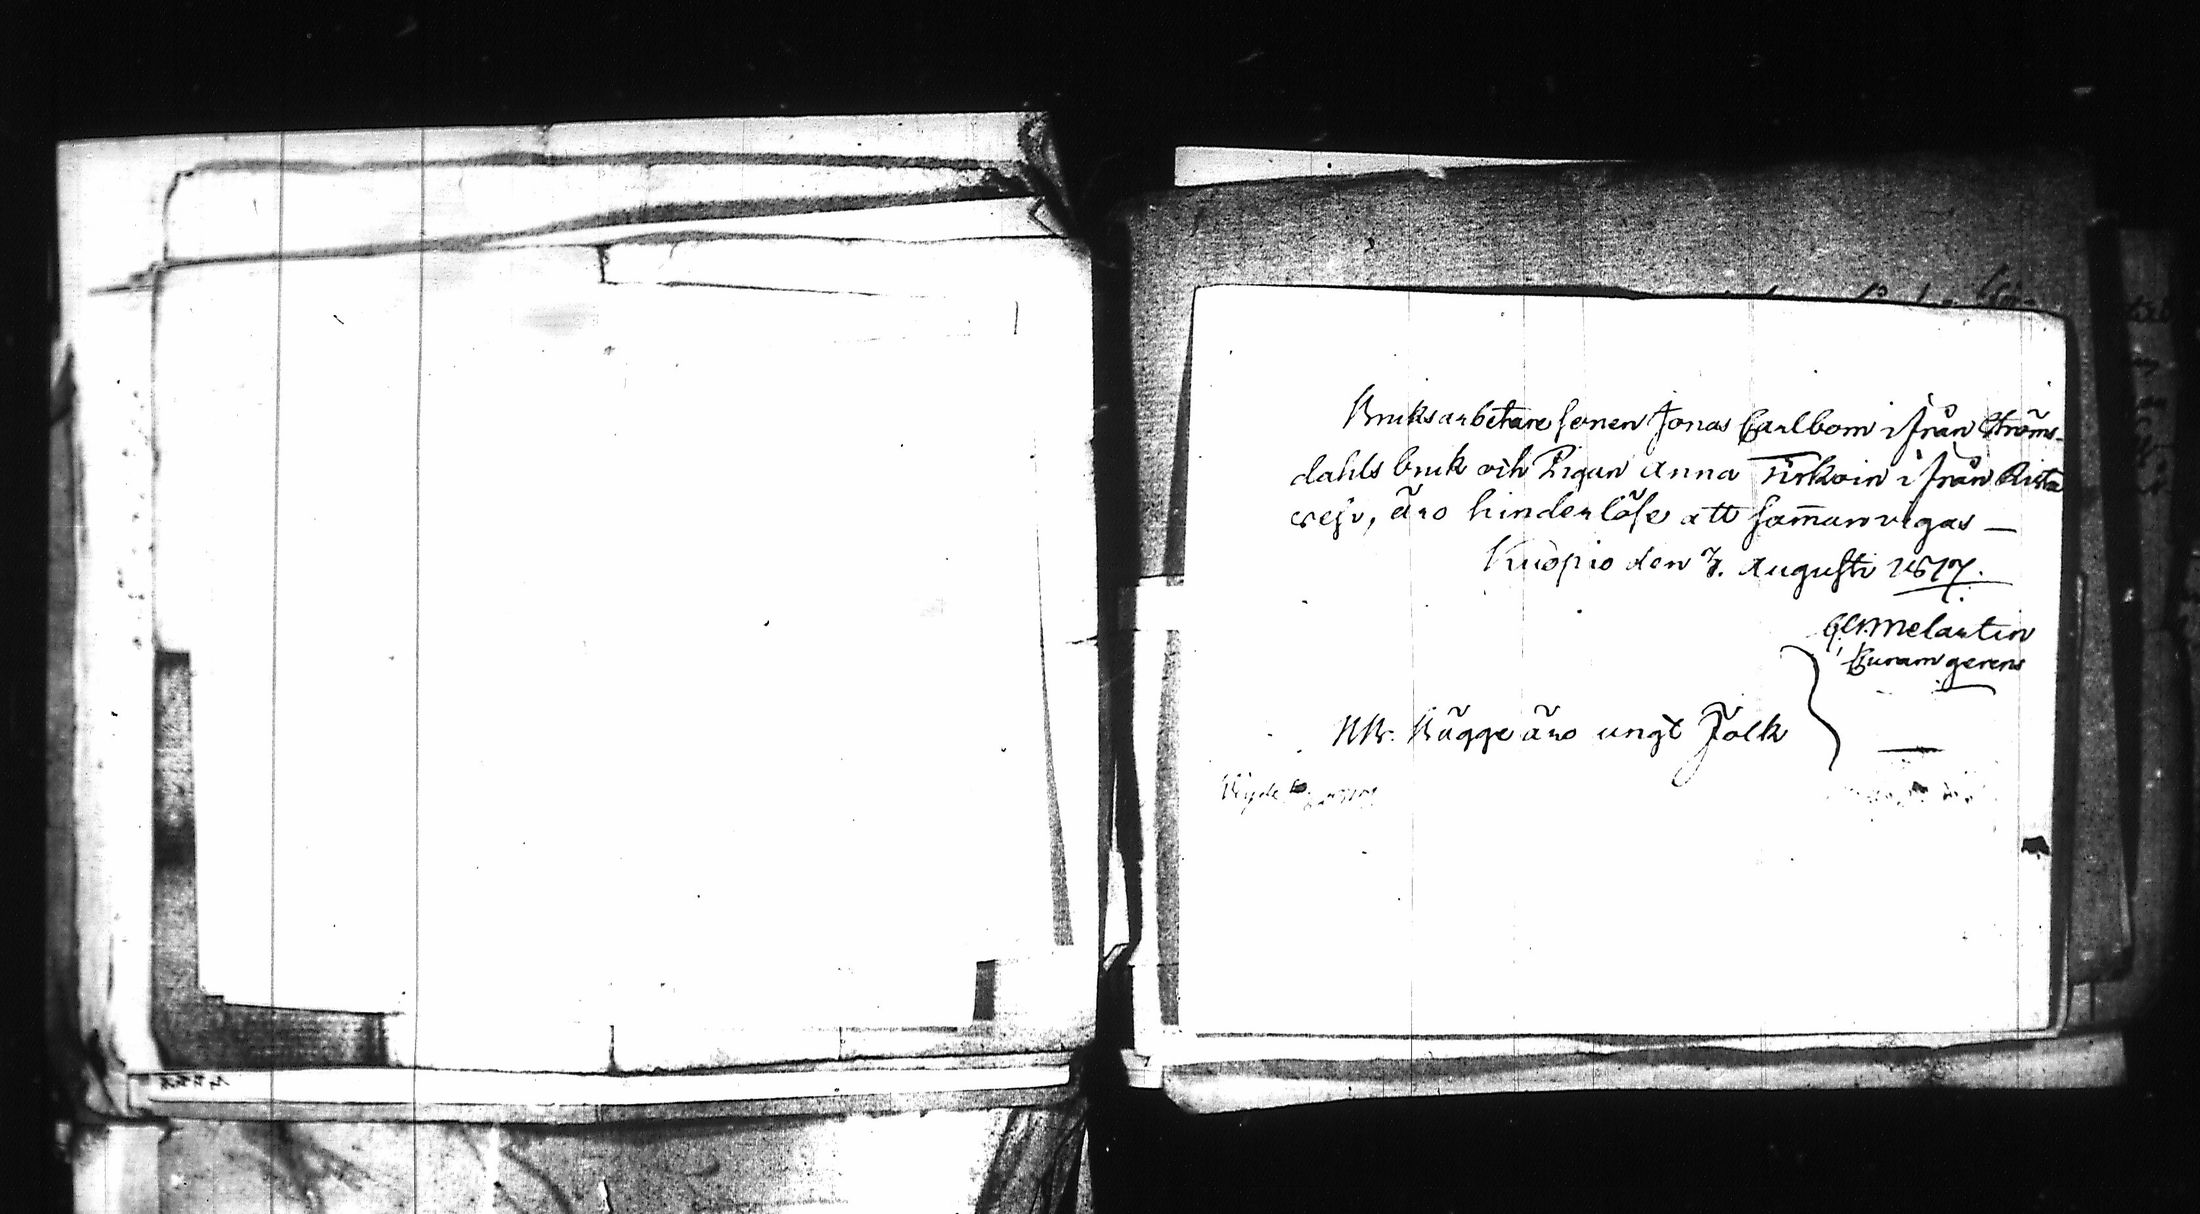 Bruksarbetare sonen Jonas Carlbom ifrån Ströms-
dahls bruk och Pigan Anna Tirkoin ifrån Rista
wesi, äro hinderlöse att sam̄anvigas —
Kuopio den 3. Augusti 1817.
Melartin
Curam gerens
NB. Bägge äro ungt Folk
Vigde